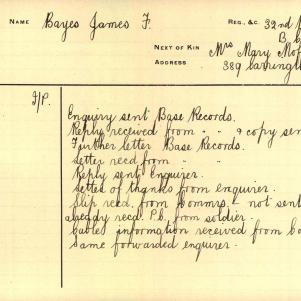 NAME Bayes James F. REG. &C. 32nd
B.
NEXT OF KIN Mrs Mary
ADDRESS 389 Carrington
I/P.
Enquiry sent Base Records.
Reply received from " " & copy sen
Further letter Base Records.
Letter recd from " "
Reply sent enquirer.
Letter of thanks from enquirer.
Slip recd. from Commrs. - not sent
already recd. P.C. from soldier.
Cables information received from
Same forwarded enquirer.